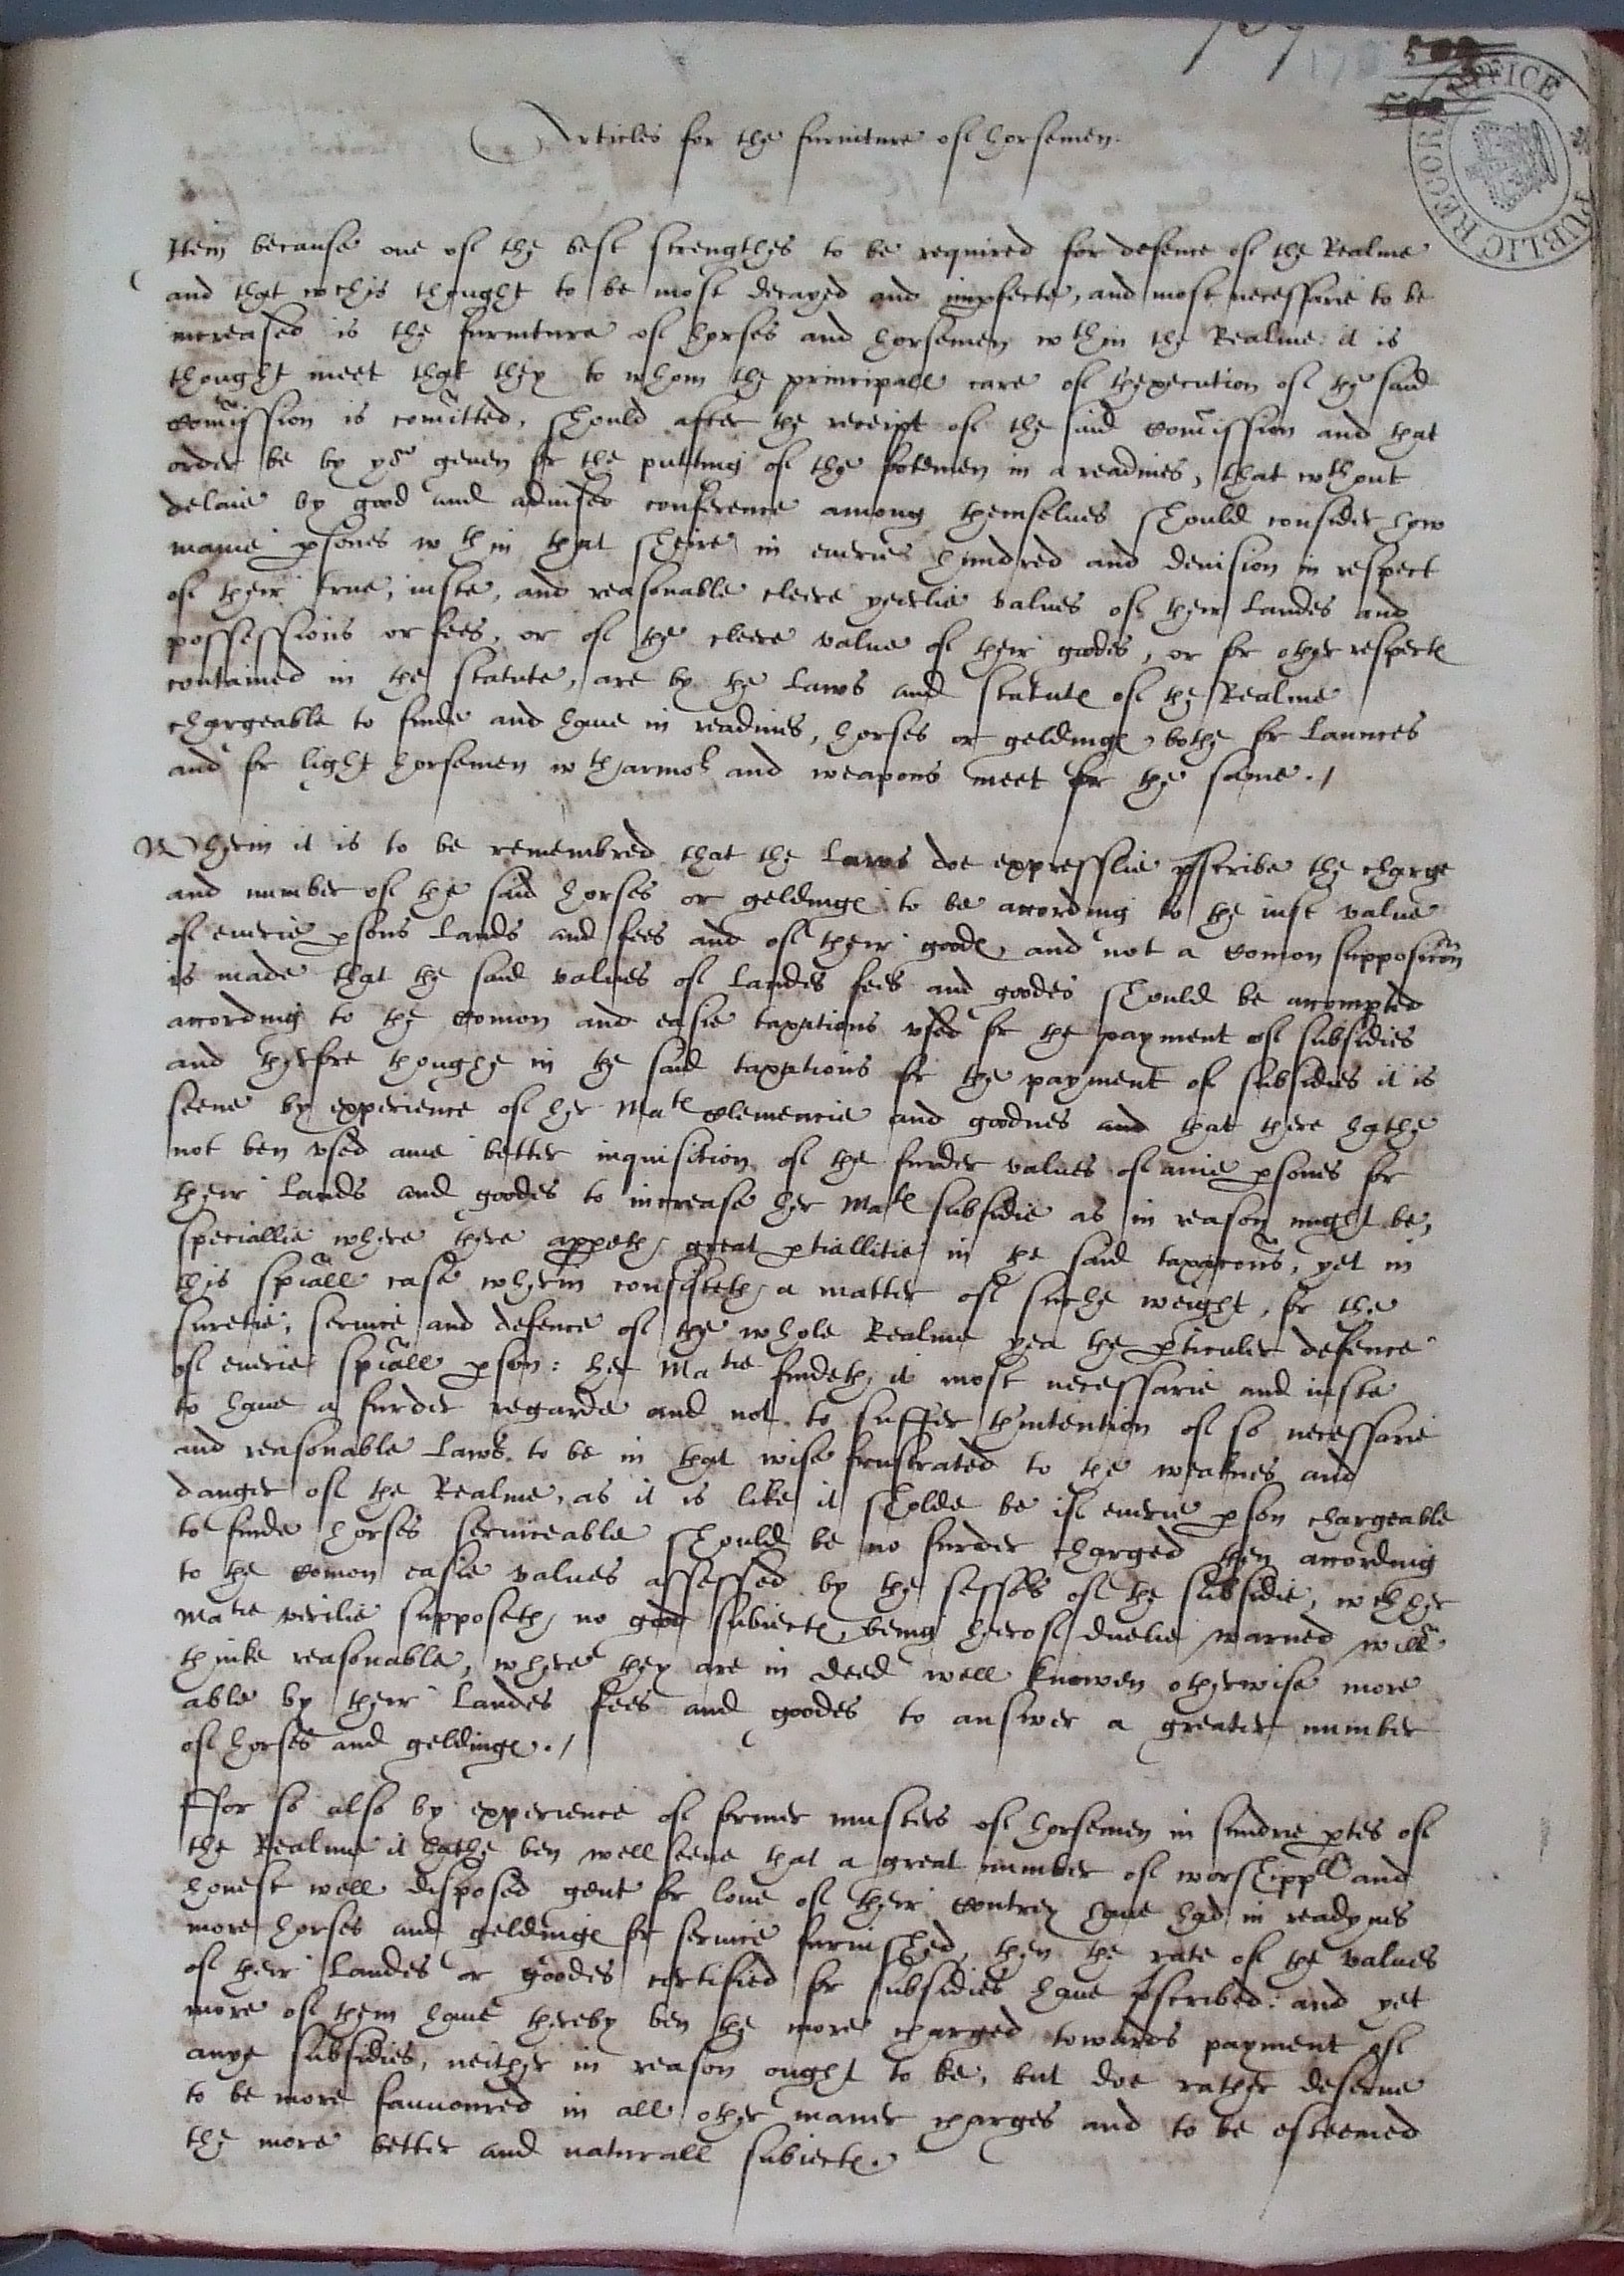 Articles for the furniture of horsemen.
Item because one of the best strengthes to be required for defence of the Realme
and that wchis thought to be most decayed and impfecte, and most necessarie to be
increased is the furniture of horses and horsemen wthin the Realme: it is
thought meet that they to whom the principall care of thexecution of the said
comission is comitted, should after the receipt of the said comission and that
order be by ye geven for the putting of the fotemen in a readines, that wthout
delaie by good and advised conference among themselues should consider how
manie psones wthin that sheire in euerie hundred and deuision in respect
of their true, iuste, and reasonable cleere yeerlie values of their landes and
possessions or fees, or of the cleere value of their goodes, or for other respectes
contained in the statute, are by the Laws and statutes of the Realme
chargeable to finde and haue in readines, horses or geldinges, bothe for Launces
and for light horsemen wth armor and weapons meet for the same./
Wherin it is to be remembred that the Laws doe expresslie pscribe the charge
and number of the said horses or geldinges to be according to the iust value
of euerie psons Lands and fees and of their goodes, and not a comon supposicon
is made that the said values of Landes fees and goodes should be accompted
according to the comon and easie taxations vsed for the payment of subsidies
and therfore thoughe in the said taxations for the payment of subsidies it is
seene by experience of her Mates clemencie and goodnes and that there hathe
not ben vsed anie better inquisicion of the furder values of anie psones for
their Lands and goodes to increase her Mates subsidie as in reason might be,
speciallie where there appeth great ptiallitie in the said taxacons, yet in
this spiall case wherin consisteth a matter of suche weight, for the
suretie, seruice and defence of the whole Realme yea the pticuler defence
of euerie spiall pson: her Matie findeth it most necessarie and iuste
to haue a furder regarde and not to suffer thintention of so necessarie
and reasonable Laws to be in that wise frustrated to the weaknes and
danger of the Realme, as it is like it sholde be if euerie pson chargeable
to finde horses serviceable should be no furder charged then according
to the comon easie values assessed by the sessors of the subsidie, wch her
Matie verilie supposeth no good subiectes being herof duelie warned will
thinke reasonable, where they are in deed well knowen otherwise more
able by their Landes fees and goodes to answer a greater number
of horses and geldinges./
Ffor so also by experience of former musters of horsemen in sundrie ptes of
the Realme it hathe ben well seene that a great number of worshippll and
honest well disposed gent for loue of their contrey haue had in readynes
more horses and geldinges for seruice furnished, then the rate of the values
of their Landes or goodes certified for subsidies haue pscribed: and yet
more of them haue thereby ben the more charged towards payment of
anye subsidies, neither in reason ought to be, but doe rather deserue
to be more fauuoured in all other maner charges and to be esteemed
the more better and naturall subiectes.
PUBLIC RECORD OFFICE